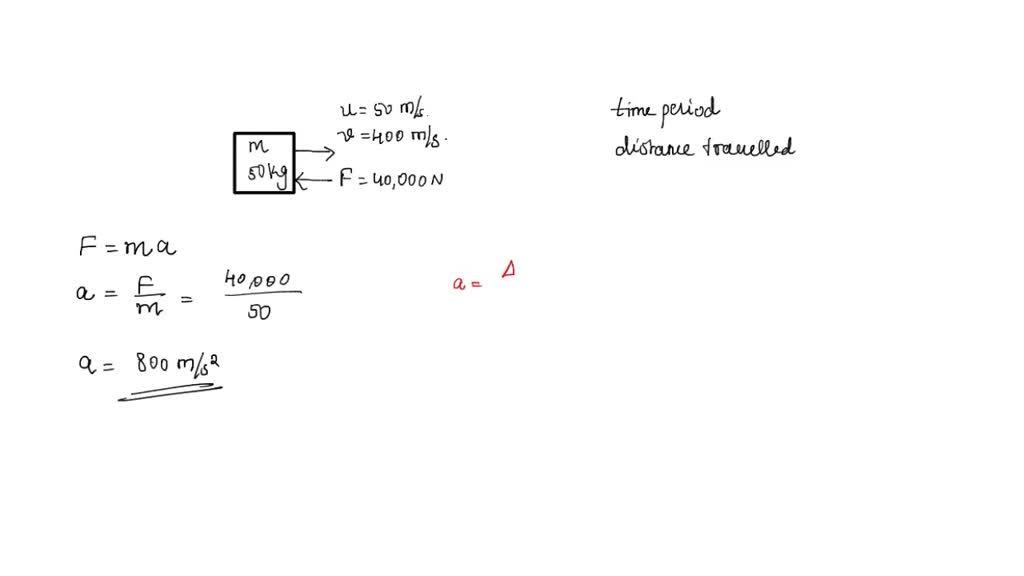 u = 50 m/s.
v = 400 m/s.
m
50kg
F = 40,000 N
time period
distance travelled
F = ma
a = F/m = 40,000/50
a = 800 m/s²
a = Δ